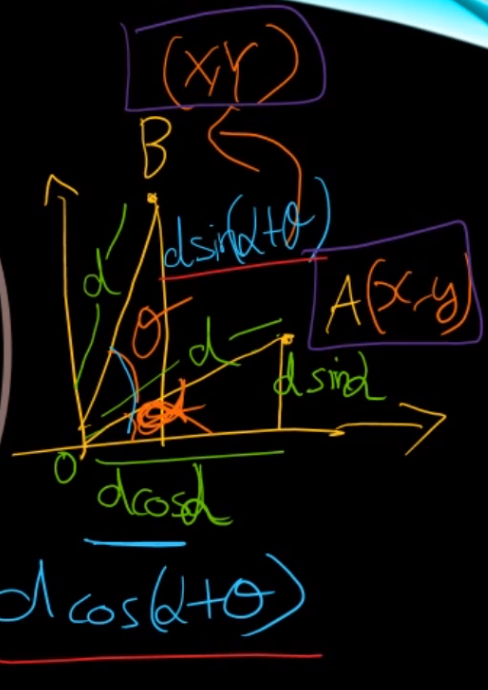 (X,Y)
B
d sin(α+θ)
A(x,y)
d
θ
d
α
d sinα
O
d cosα
d cos(α+θ)